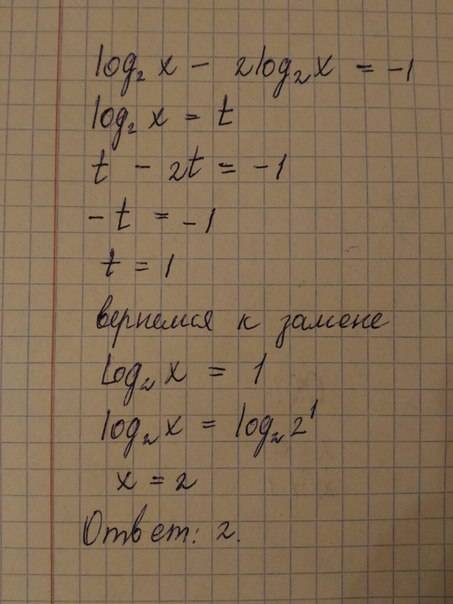 log₂ x - 2log₂ x = -1
log₂ x = t
t - 2t = -1
-t = -1
t = 1
вернемся к замене
log₂ x = 1
log₂ x = log₂ 2¹
x = 2
Ответ: 2.